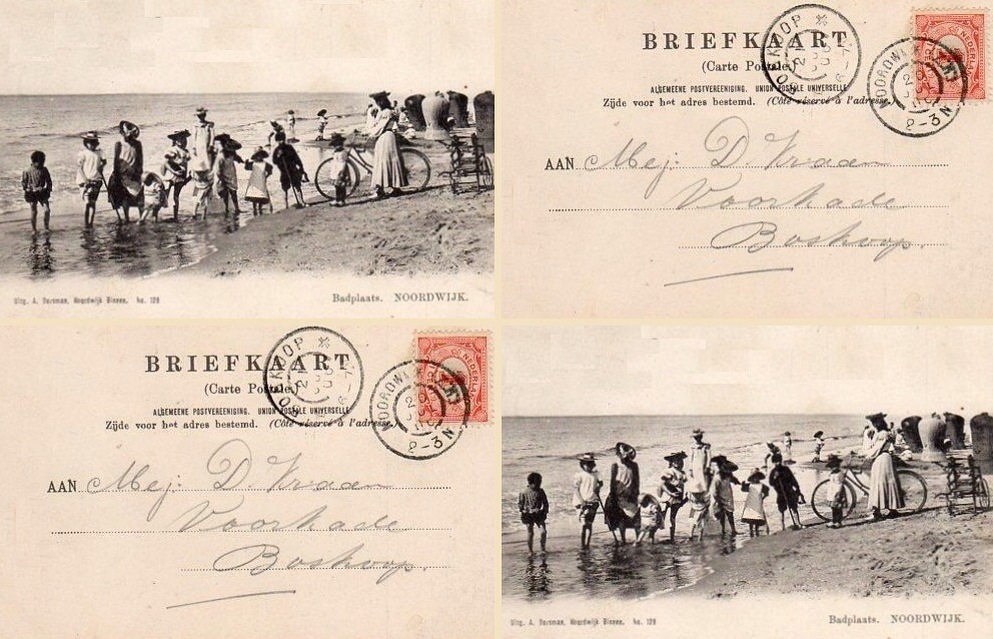 Uitg. A. Dorsman, Noordwijk Binnen, No. 129
Badplaats. NOORDWIJK.
BRIEFKAART
(Carte Postale.)
ALGEMEENE POSTVEREENIGING. UNION POSTALE UNIVERSELLE
Zijde voor het adres bestemd. (Côté réservé à l'adresse.)
BOSKOOP
NOORDWIJK
2-3N
NEDERLAND
AAN Mej: D. Kraan
Voorkade
Boskoop.
BRIEFKAART
(Carte Postale.)
ALGEMEENE POSTVEREENIGING. UNION POSTALE UNIVERSELLE
Zijde voor het adres bestemd. (Côté réservé à l'adresse.)
BOSKOOP
NOORDWIJK
2-3N
NEDERLAND
AAN Mej: D. Kraan
Voorkade
Boskoop.
Uitg. A. Dorsman, Noordwijk Binnen, No. 129
Badplaats. NOORDWIJK.